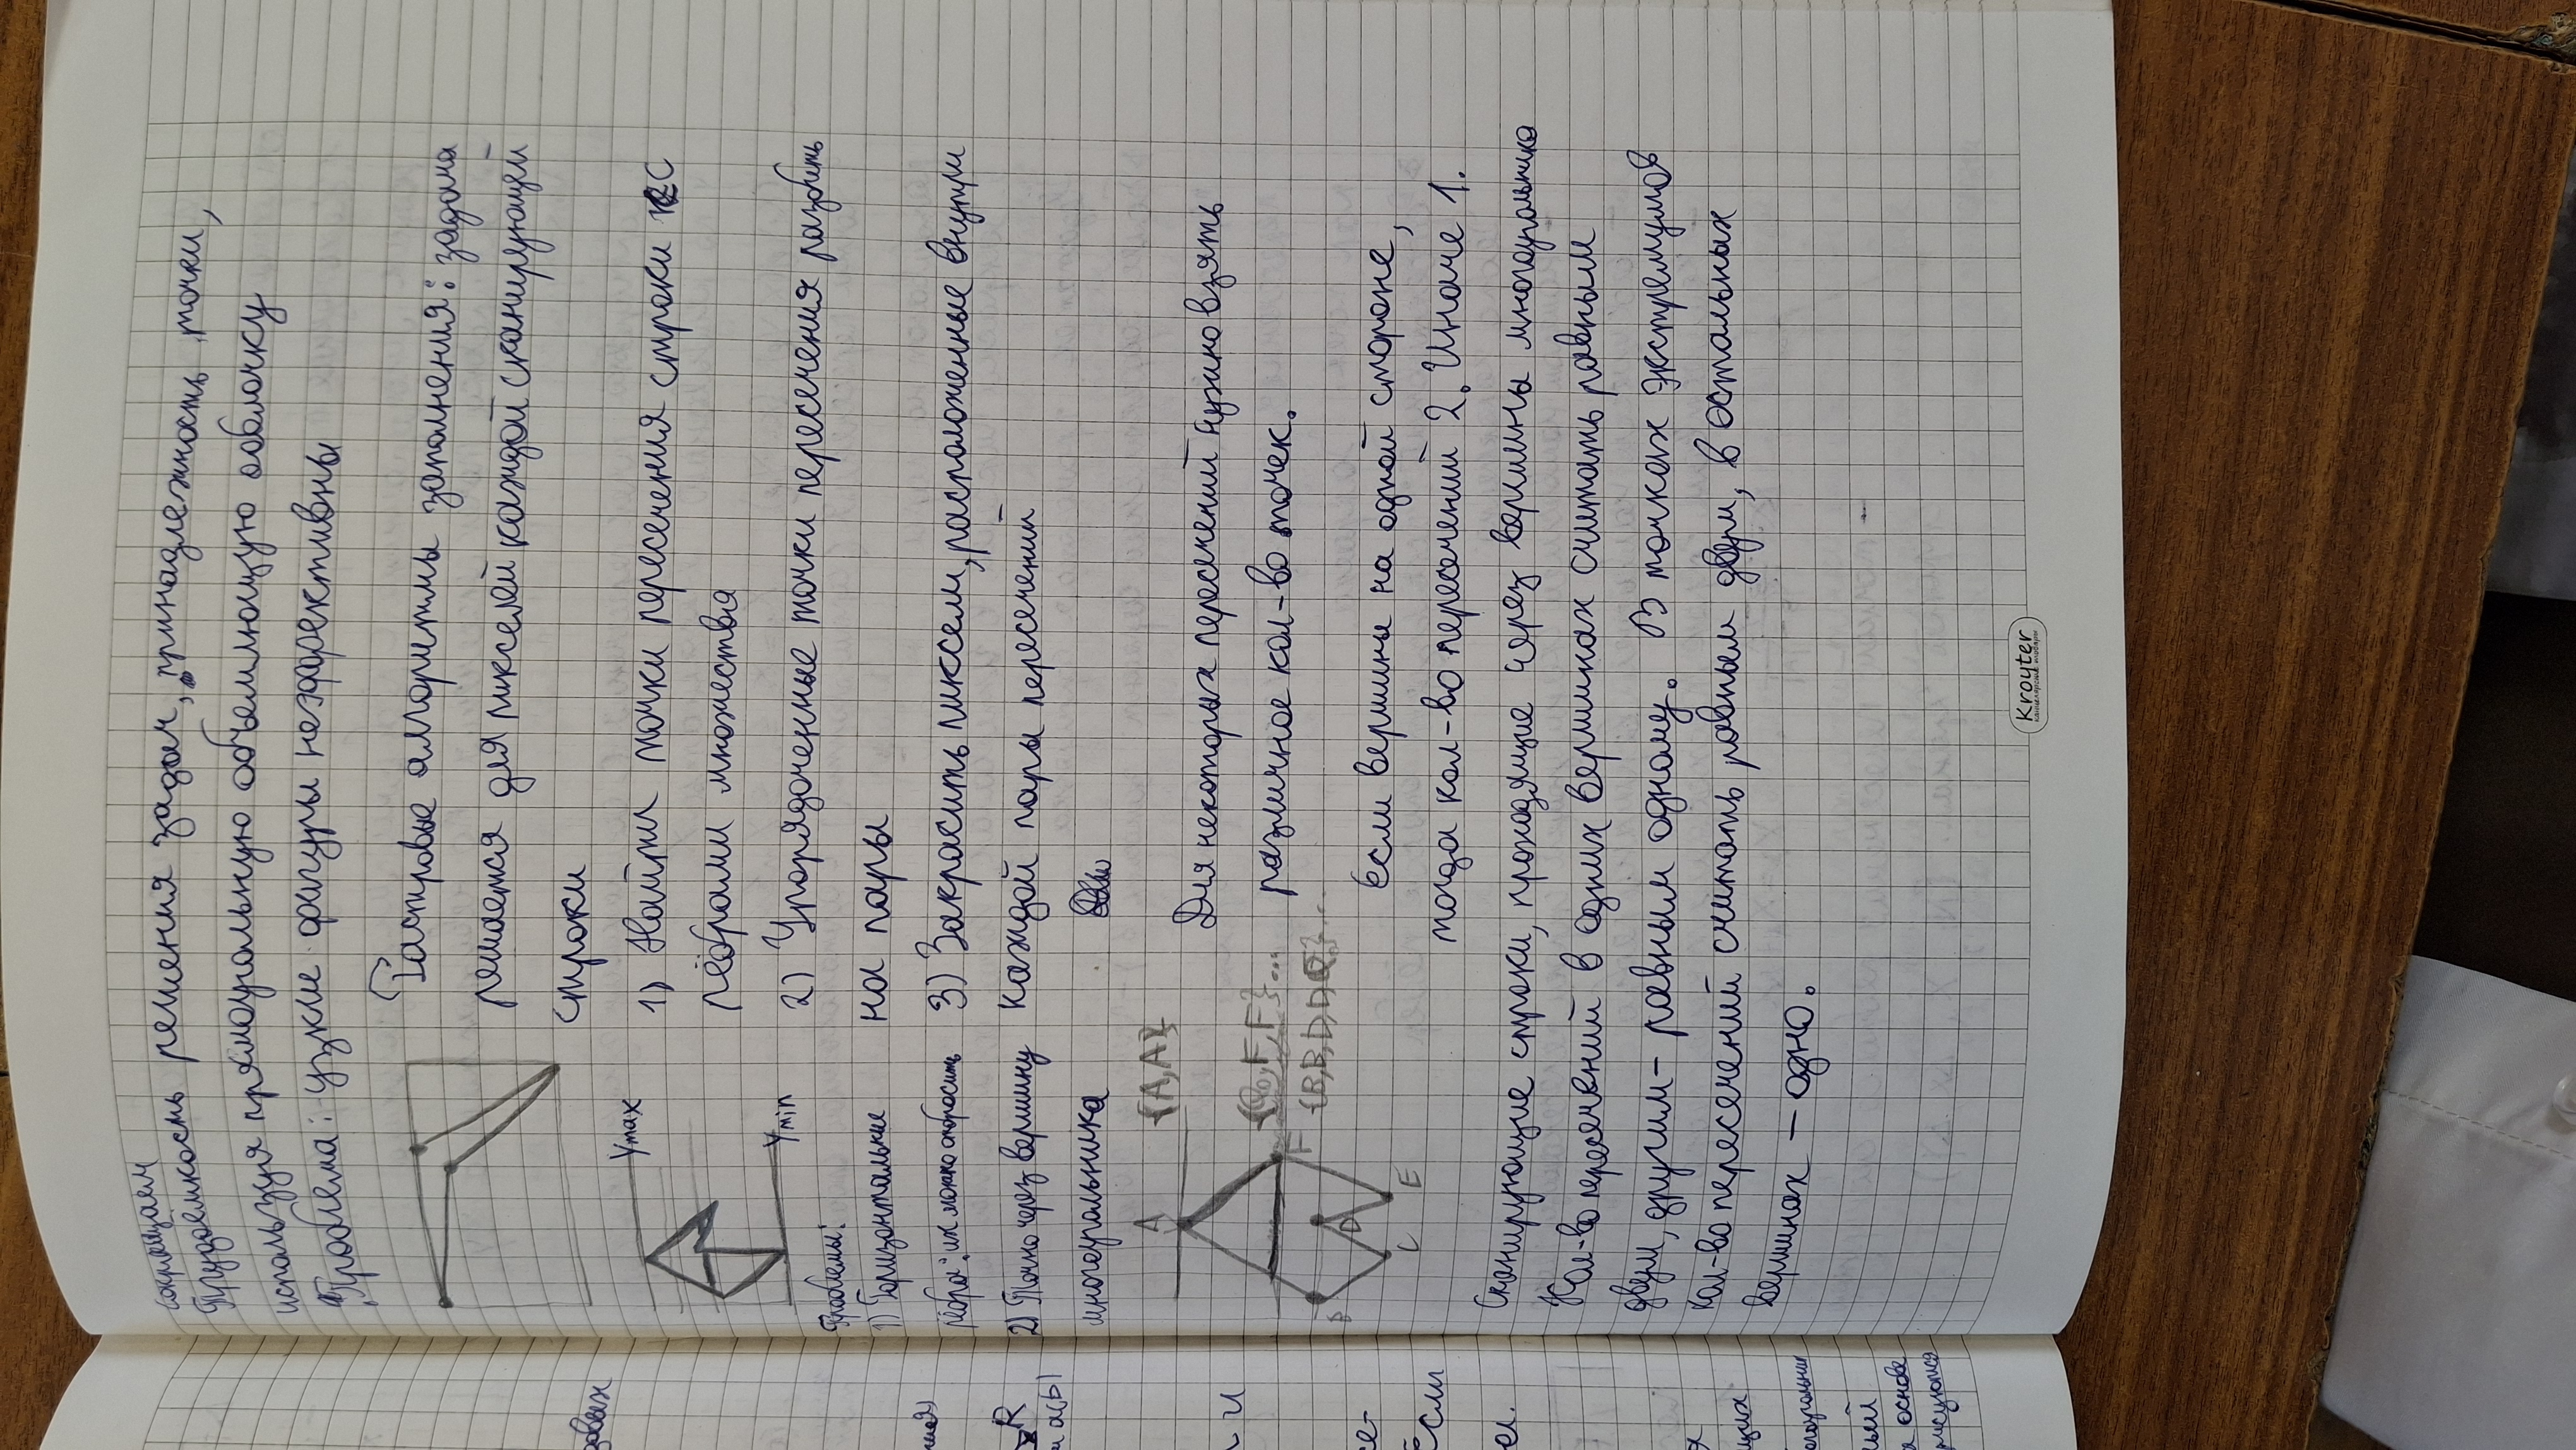 Сокращаем
Трудоёмкость решения задач, принадлежность точки,
используя прямоугольную объемлющую оболочку
Проблема: узкие фигуры неэффективны
Растровые алгоритмы заполнения: задача
решается для пикселей каждой сканирующей
строки
Ymax
1) Найти точки пересечения строки с
рёбрами множества
Ymin
2) Упорядоченные точки пересечения разбить
на пары
Проблемы:
1) Горизонтальные
рёбра: их можно отбросить
3) Закрасить пиксели, расположенные внутри
каждой пары пересечений
2) Точно через вершину
многоугольника
A
{A, A}
Для некоторых пересечений нужно взять
различное кол-во точек.
{Q0, F, F}...
F
{B, B, D, D, Q0}...
B
D
C E
Если вершины на одной стороне,
тогда кол-во пересечений 2. Иначе 1.
Сканирующие строки, проходящие через вершины многоугольника
Кол-во пересечений в одних вершинах считать равным
двум, другим - равным одному. В точках экстремумов
кол-во пересечений считать равным двум, в остальных
вершинах - одно.
зовых
R
и a(b)
и
се-
Если
щих
ный
а основе
рисуются
Kroyter
канцелярские товары